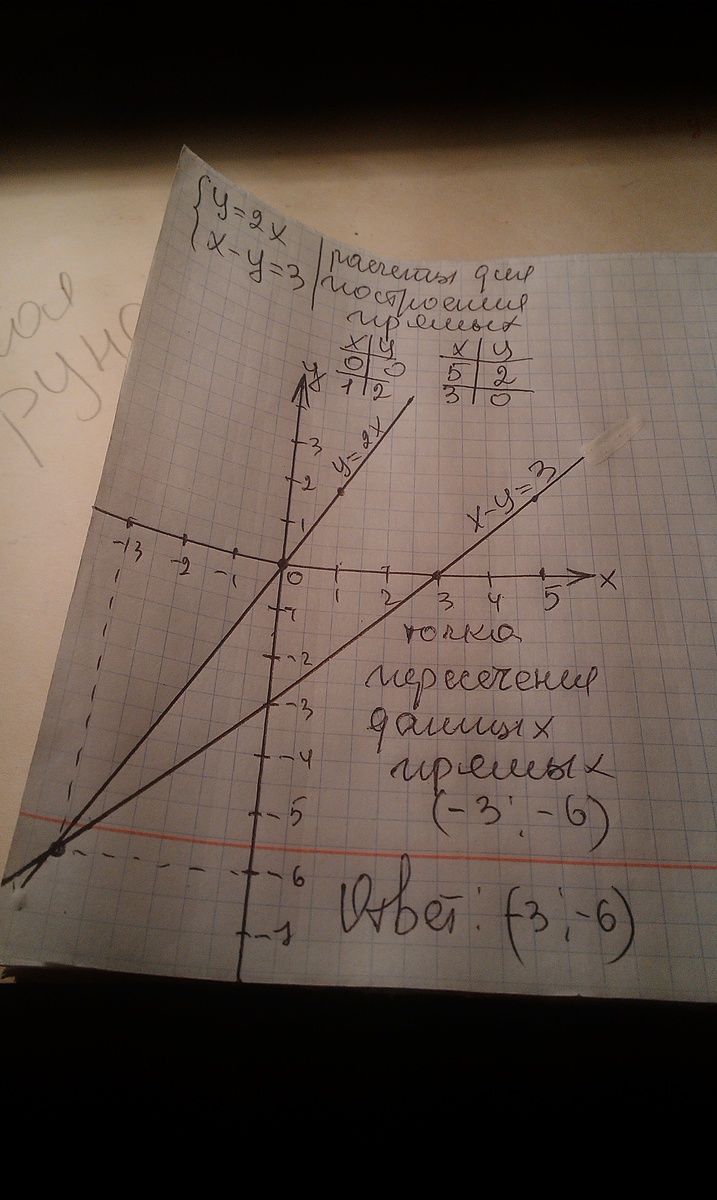 { y=2x
x-y=3
расчеты для
построения
прямых
x | y
0 | 0
1 | 2
x | y
5 | 2
3 | 0
y
3
2
1
y=2x
x-y=3
-3 -2 -1 0 1 2 3 4 5 x
-1
-2
-3
-4
-5
-6
-7
точка
пересечения
данных
прямых
(-3; -6)
Ответ: (-3; -6)